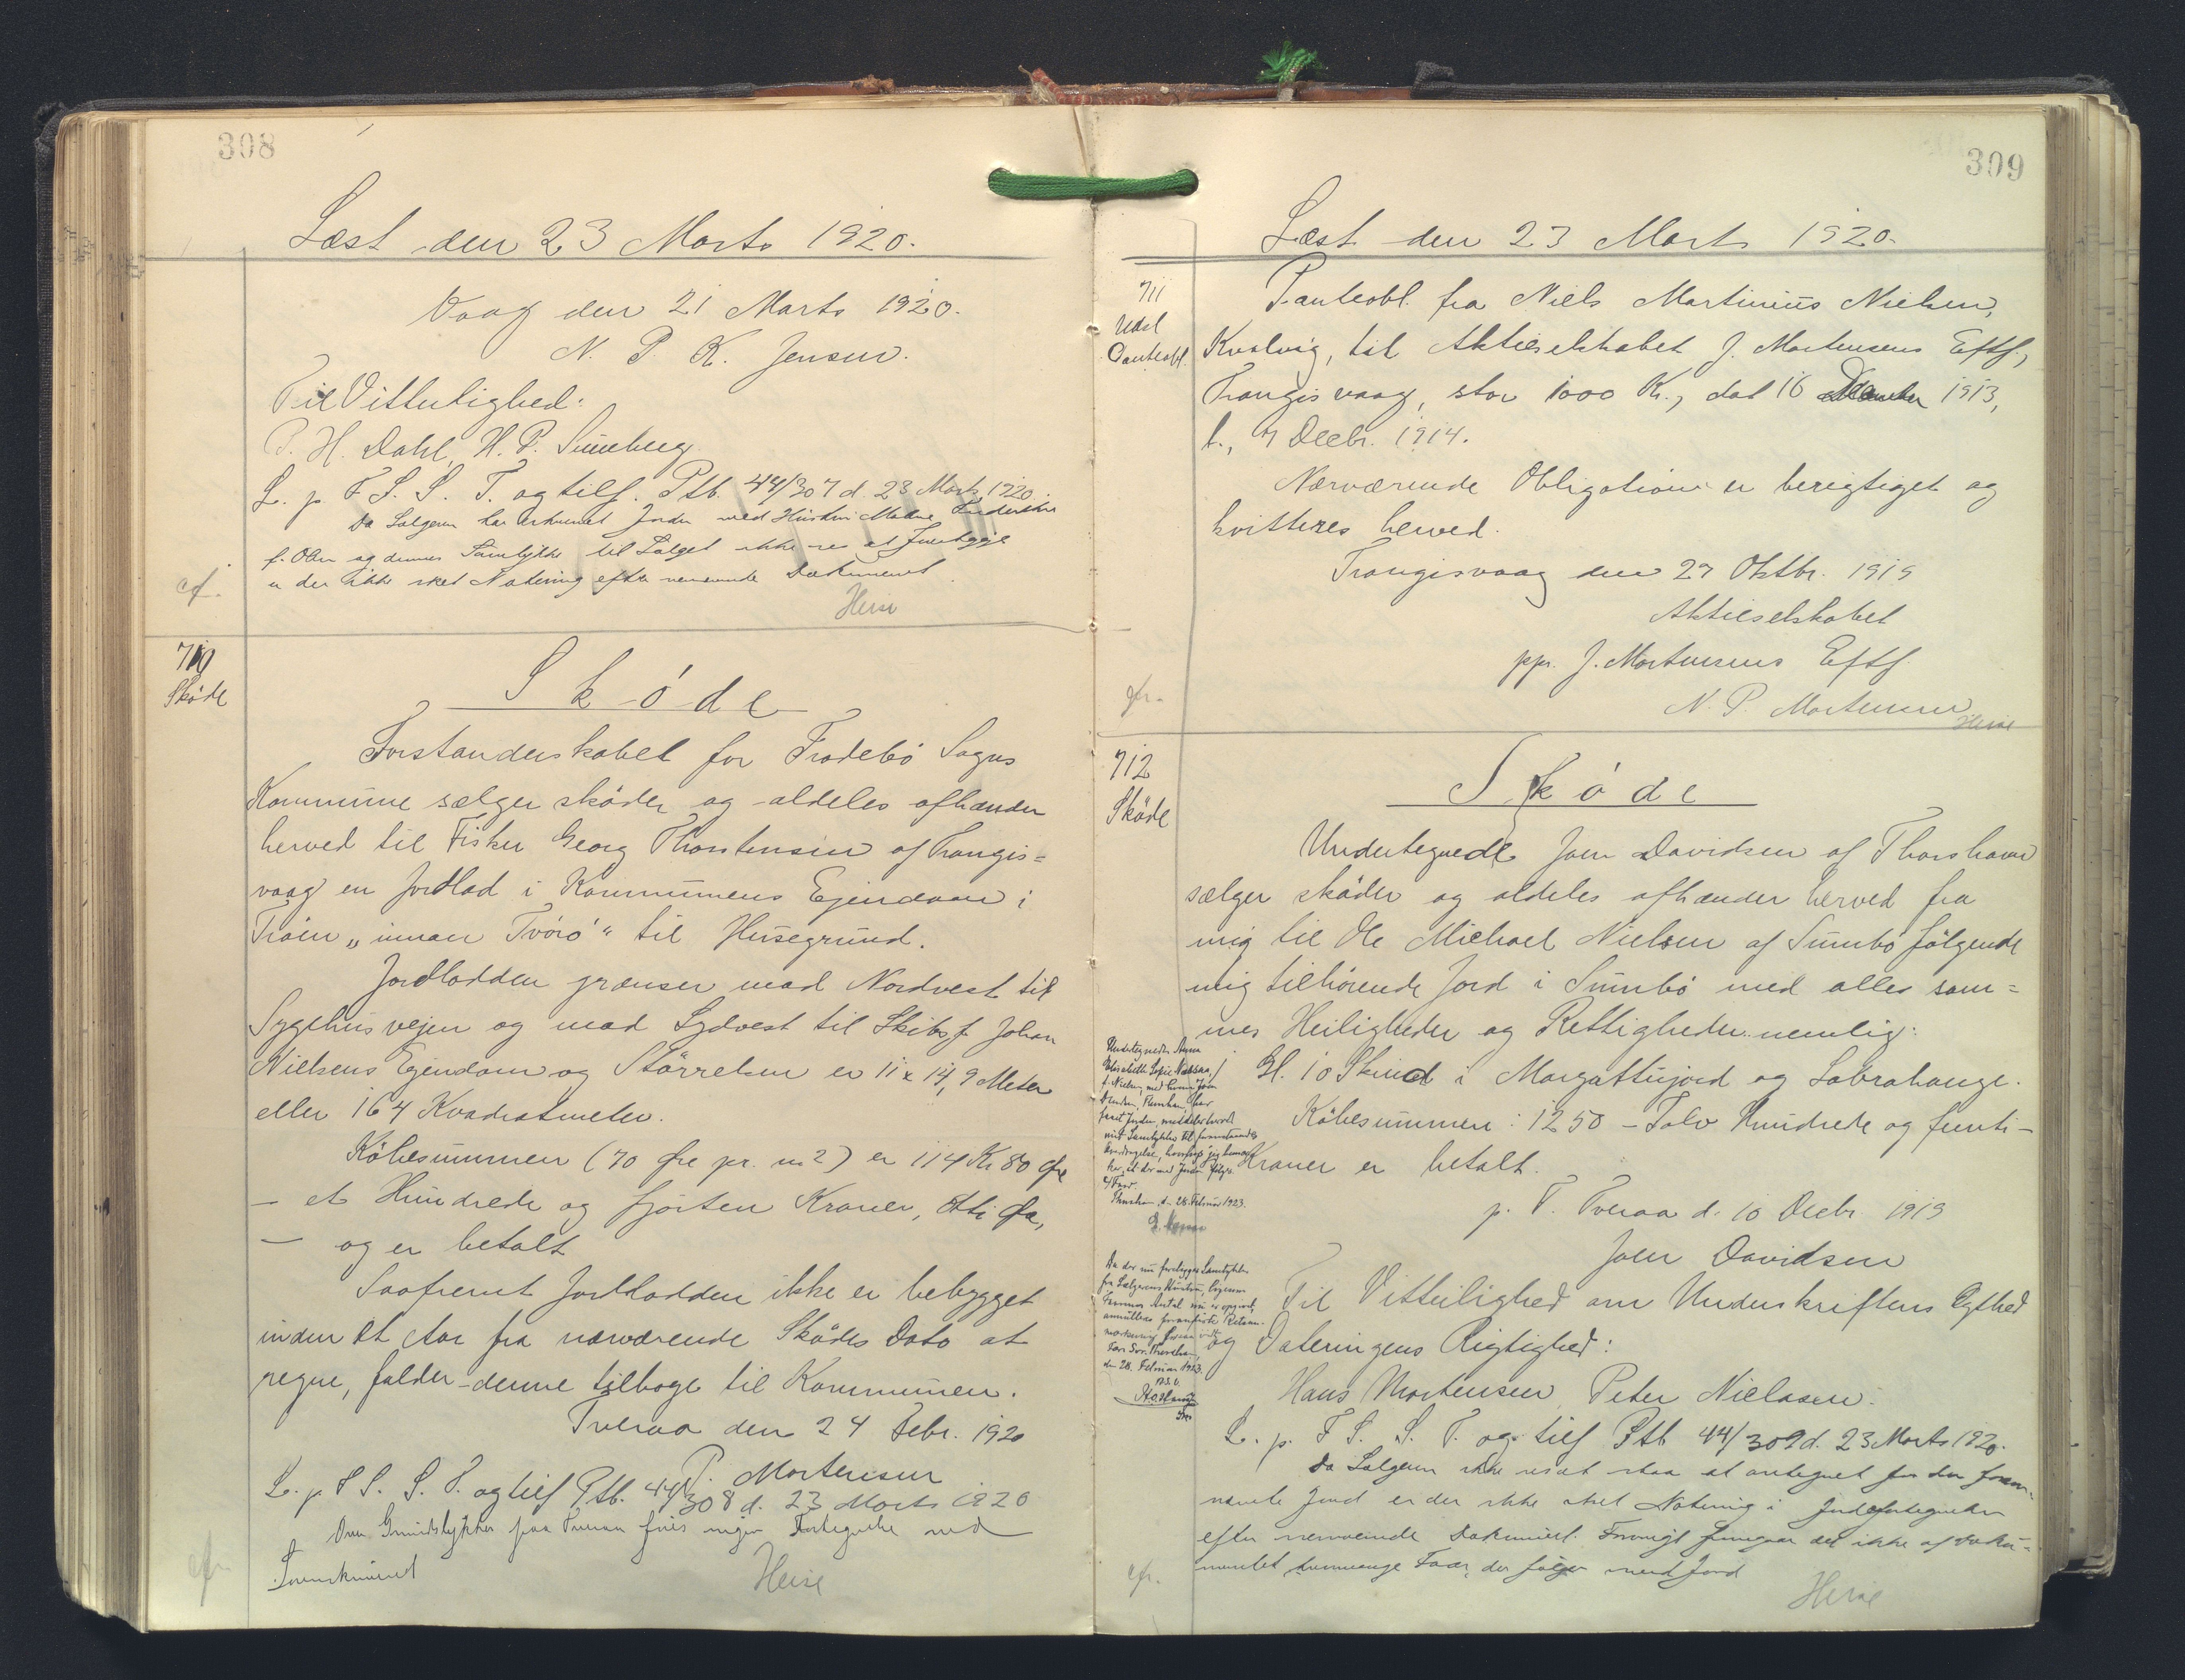 308
Læst den 23 Marts 1920.
Vaag den 21 Marts 1920.
N. P. K. Jensen.
Til Vitterlighed:
P. H. Dahl, H. P. Sumberg
L. p. F. S. S. T. og tilf. Ptb. 44/307 d. 23 Marts 1920.
Da Sælgeren har erhvervet Jorden med Hustru
f. Olsen og dennes Samtykke til Salget ikke ses at foreligge
er der ikke sket Notering efter nærværende Dokument.
cf.
Heise
710
Skøde
Skøde
Forstanderskabet for Frodebø Sogns
Kommune sælger skøder og aldeles afhænder
herved til Fisker Georg Thorstensen af Trangis=
vaag en Jordlod i Kommunens Ejendom i
Trøen „innan Tvørö“ til Husegrund.
Jordlodden grænser mod Nordvest til
Sygehusvejen og mod Sydvest til Skibsf. Johan
Nielsens Ejendom og Størrelsen er 11 x 14,9 Meter
eller 164 Kvadratmeter.
Købesummen (70 Øre pr. m2) er 114 Kr 80 Øre
– et Hundrede og fjorten Kroner, Otti Øre,
– og er betalt
Saafremt Jordlodden ikke er bebygget
inden et Aar fra nærværende Skødes Dato at
regne, falder denne tilbage til Kommunen.
Tveraa den 24 Febr. 1920
P. Mortensen
L. p. F. S. S. T. og tilf Ptb. 44/308 d. 23 Marts 1920
Over Grundstykker paa Tveraa føres ingen Fortegnelse ved
Sorenskriveriet
cfr.
Heise
309
Læst den 23 Marts 1920.
711
Udsl
Panteobl.
Panteobl. fra Niels Martinius Nielsen,
Kvalvig, til Aktieselskabet J. Mortensens Eftf.,
Trangisvaag, stor 1000 Kr., dat 16 1913,
l., 7 Decbr. 1914.
Nærværende Obligation er berigtiget og
kvitteres herved.
Trangisvaag den 27 Oktbr. 1919
Aktieselskabet
ppr. J. Mortensens Eftf.
N. P. Mortensen
cfr.
Heise
712
Skøde
Skøde
Undertegnede Joen Davidsen af Thorshavn
sælger skøder og aldeles afhænder herved fra
mig til Ole Michael Nielsen af Sumbø følgende
mig tilhørende Jord i Sumbø med alles sam=
mes Heiligheder og Rettigheder nemlig:
Gl. 10 Skind i Morgattujord og Labrahauge.
Købesummen: 1250 – Tolv Hundrede og femti –
Kroner er betalt.
p. T. Tveraa d. 10 Decbr. 1919
Joen Davidsen
Til Vitterlighed om Underskriftens Ægthed
og Dateringens Rigtighed:
Hans Mortensen, Peter Nielasen.
L. p. F S. S. T. og tilf Ptb 44/309 d. 23 Marts 1920.
Da Sælgeren ikke ses at staa at antegnet for den foran=
nævnte Jord er der ikke sket Notering i Jordefortegnelsen
efter nærværende Dokument. Forøvrigt fremgaar det ikke af Doku=
mentet hvormange Faar, der følger med Jord
cfr.
Heise
Undertegnede Anna
Elisabeth Sofie
f. Nielsen, med hvem Joen
Davidsen, Thorshavn, har
faaet Jorden, meddeler herved
mit Samtykke til foranstaaende
Overdragelse, hvorhos jeg bemær-
ker, at der med Jorden følger
4 Faar.
Thorshavn d. 28 Februar 1923.
Da der nu foreligger Samtykke
fra Sælgerens Hustru, ligesom
Faarenes Antal nu er opgivet,
annulleres foranførte Retsan-
mærkning
den 28. Februar 1923.